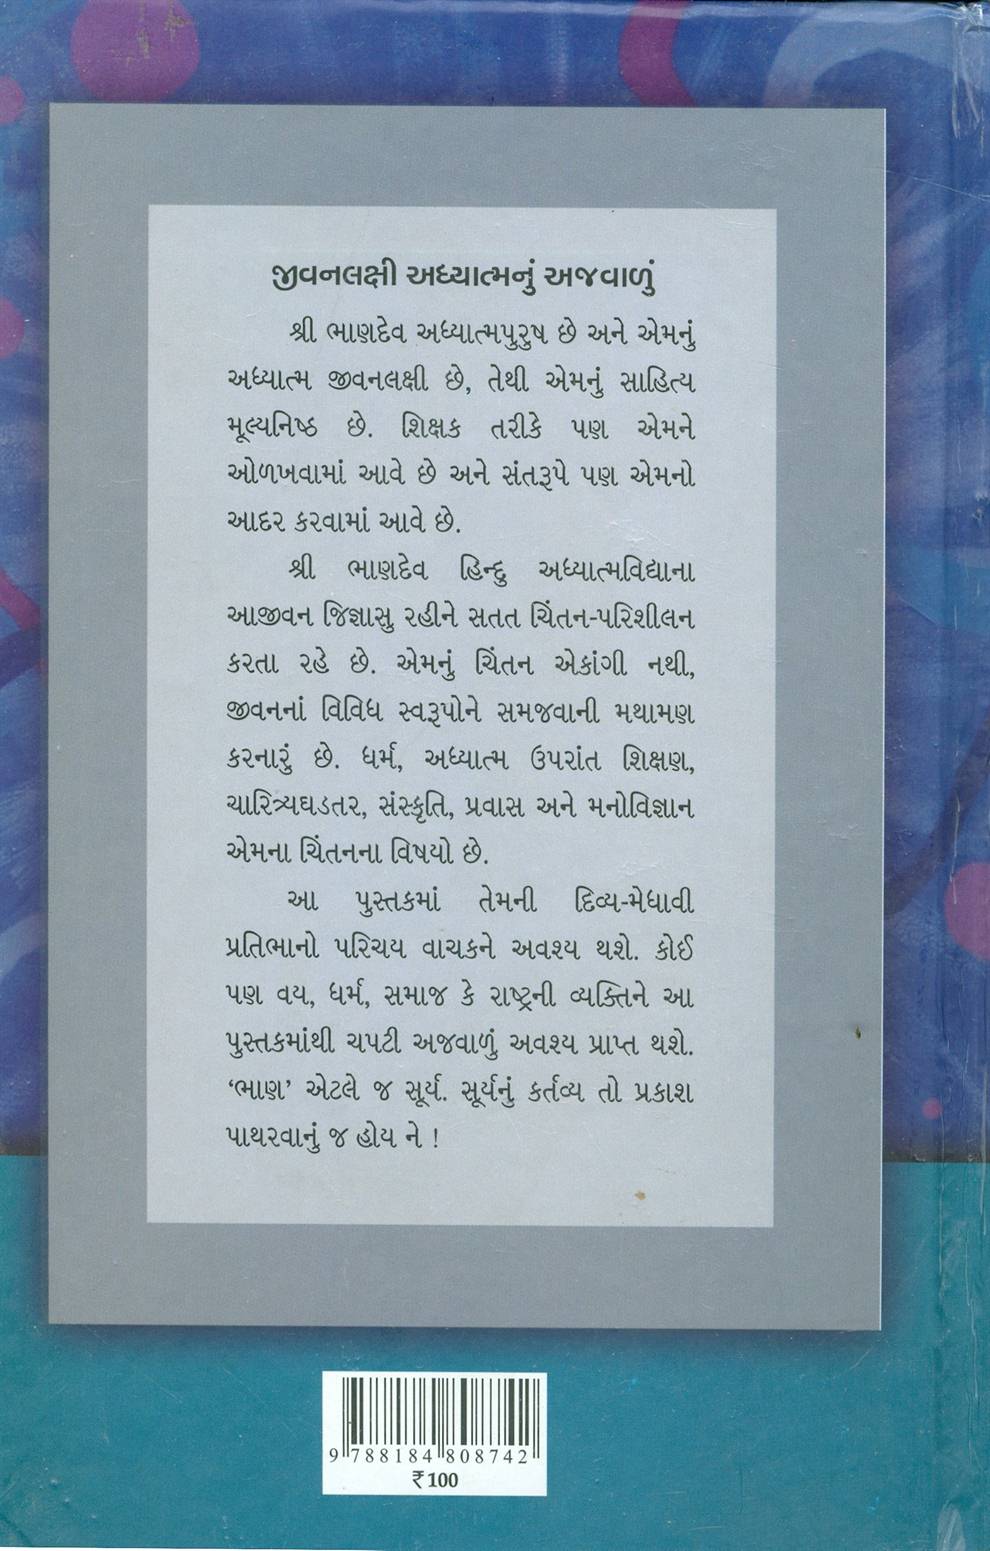 જીવનલક્ષી અધ્યાત્મનું અજવાળું
શ્રી ભાણદેવ અધ્યાત્મપુરુષ છે અને એમનું
અધ્યાત્મ જીવનલક્ષી છે, તેથી એમનું સાહિત્ય
મૂલ્યનિષ્ઠ છે. શિક્ષક તરીકે પણ એમને
ઓળખવામાં આવે છે અને સંતરૂપે પણ એમનો
આદર કરવામાં આવે છે.
શ્રી ભાણદેવ હિન્દુ અધ્યાત્મવિદ્યાના
આજીવન જિજ્ઞાસુ રહીને સતત ચિંતન-પરિશીલન
કરતા રહે છે. એમનું ચિંતન એકાંગી નથી,
જીવનનાં વિવિધ સ્વરૂપોને સમજવાની મથામણ
કરનારું છે. ધર્મ, અધ્યાત્મ ઉપરાંત શિક્ષણ,
ચારિત્ર્યઘડતર, સંસ્કૃતિ, પ્રવાસ અને મનોવિજ્ઞાન
એમના ચિંતનના વિષયો છે.
આ પુસ્તકમાં તેમની દિવ્ય-મેધાવી
પ્રતિભાનો પરિચય વાચકને અવશ્ય થશે. કોઈ
પણ વય, ધર્મ, સમાજ કે રાષ્ટ્રની વ્યક્તિને આ
પુસ્તકમાંથી ચપટી અજવાળું અવશ્ય પ્રાપ્ત થશે.
‘ભાણ’ એટલે જ સૂર્ય. સૂર્યનું કર્તવ્ય તો પ્રકાશ
પાથરવાનું જ હોય ને !
9 788184 808742
₹ 100